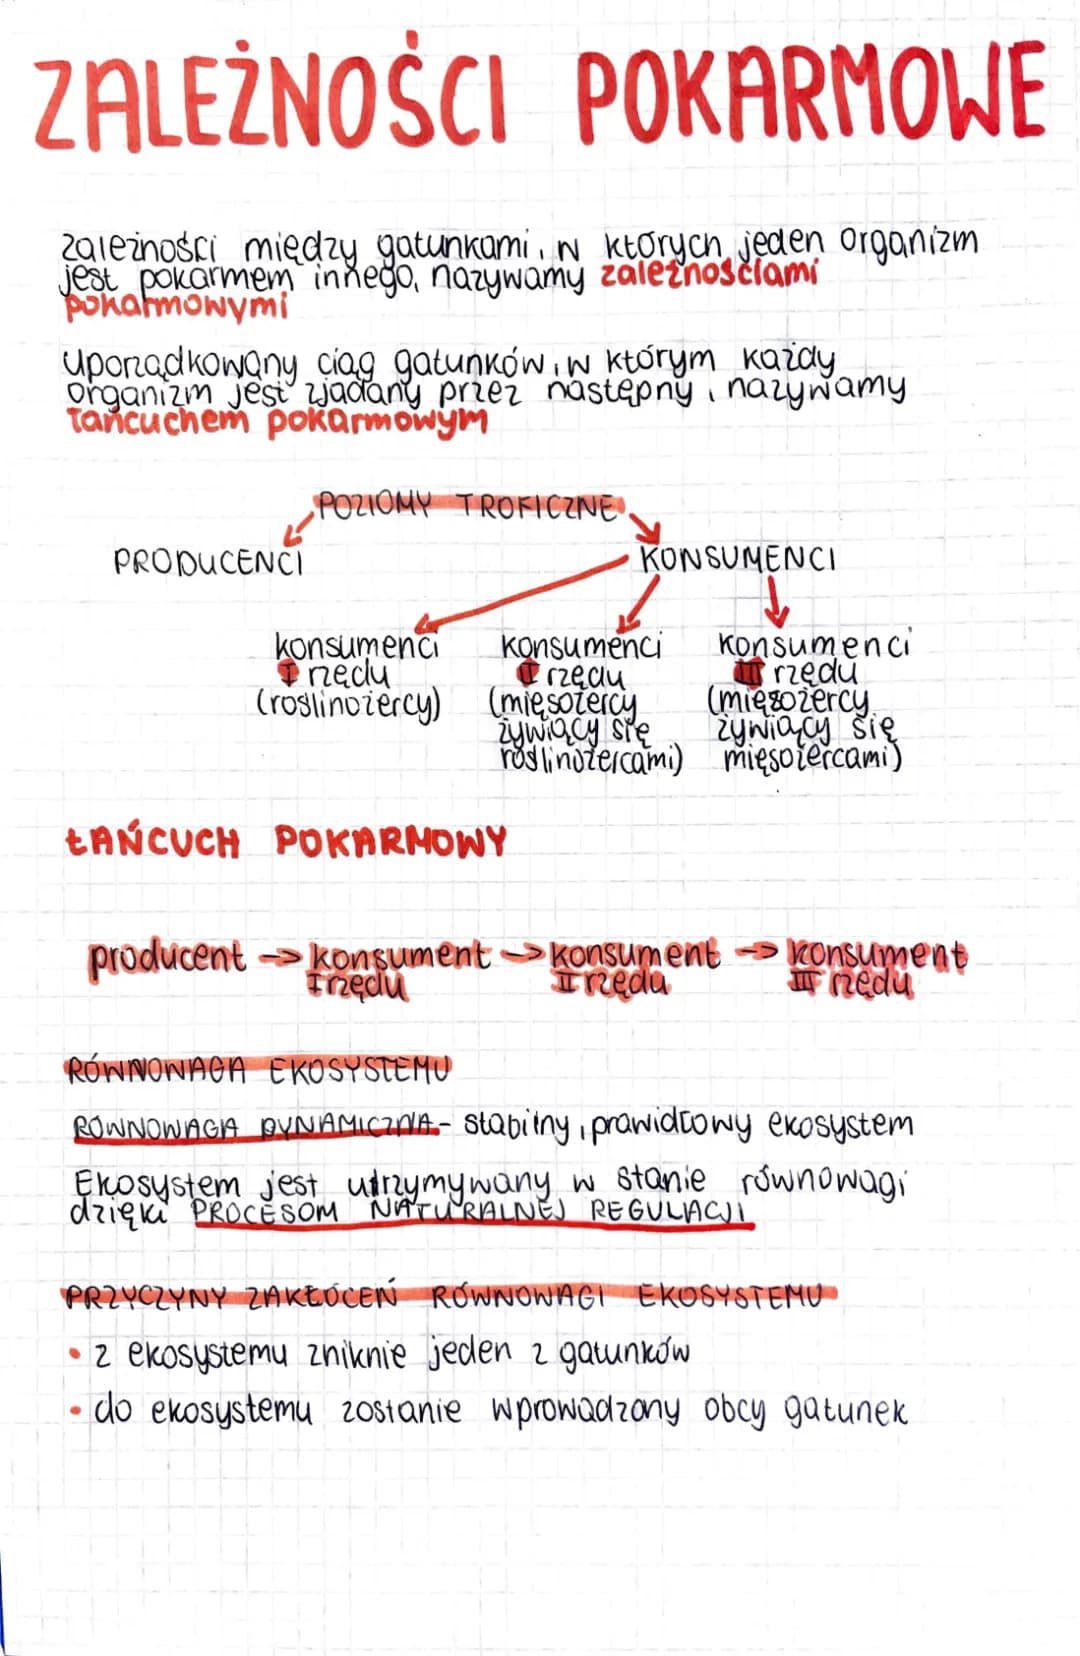 ZALEŻNOŚCI POKARMOWE
zależności między gatunkami, w których jeden organizm
jest pokarmem innego, nazywamy zależnościami
pokarmowymi
uporządkowany ciąg gatunków, w którym każdy
organizm jest zjadany przez następny, nazywamy
łańcuchem pokarmowym
POZIOMY TROFICZNE
PRODUCENCI KONSUMENCI
konsumenci
I rzędu
(roślinożercy)
konsumenci
II rzędu
(mięsożercy
żywiący się
roślinożercami)
konsumenci
III rzędu
(mięsożercy
żywiący się
mięsożercami)
ŁAŃCUCH POKARMOWY
producent -> konsument -> konsument -> konsument
I rzędu II rzędu III rzędu
RÓWNOWAGA EKOSYSTEMU
RÓWNOWAGA DYNAMICZNA - stabilny, prawidłowy ekosystem
Ekosystem jest utrzymywany w stanie równowagi
dzięki PROCESOM NATURALNEJ REGULACJI
PRZYCZYNY ZAKŁÓCEŃ RÓWNOWAGI EKOSYSTEMU
• z ekosystemu zniknie jeden z gatunków
• do ekosystemu zostanie wprowadzony obcy gatunek